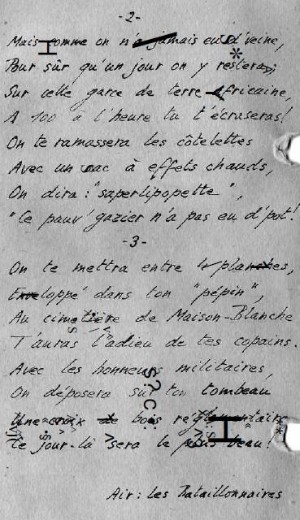 -2-
Mais comme on n'a jamais eu d'veine,
Pour sûr qu'un jour on y restera;
Sur cette garce de terre africaine,
A 100 à l'heure tu t'écraseras!
On te ramassera les côtelettes
Avec un sac à effets chauds,
On dira: "saperlipopette",
"Ce pauv' gazier n'a pas eu d'pot!
-3-
On te mettra entre 4 planches,
Enveloppé dans ton "pépin",
Au cimetière de Maison-Blanche
T'auras l'adieu de tes copains.
Avec les honneurs militaires,
On déposera sur ton tombeau
Une croix de bois réglementaire
Ce jour-là sera le plus beau!
Air: les Bataillonnaires